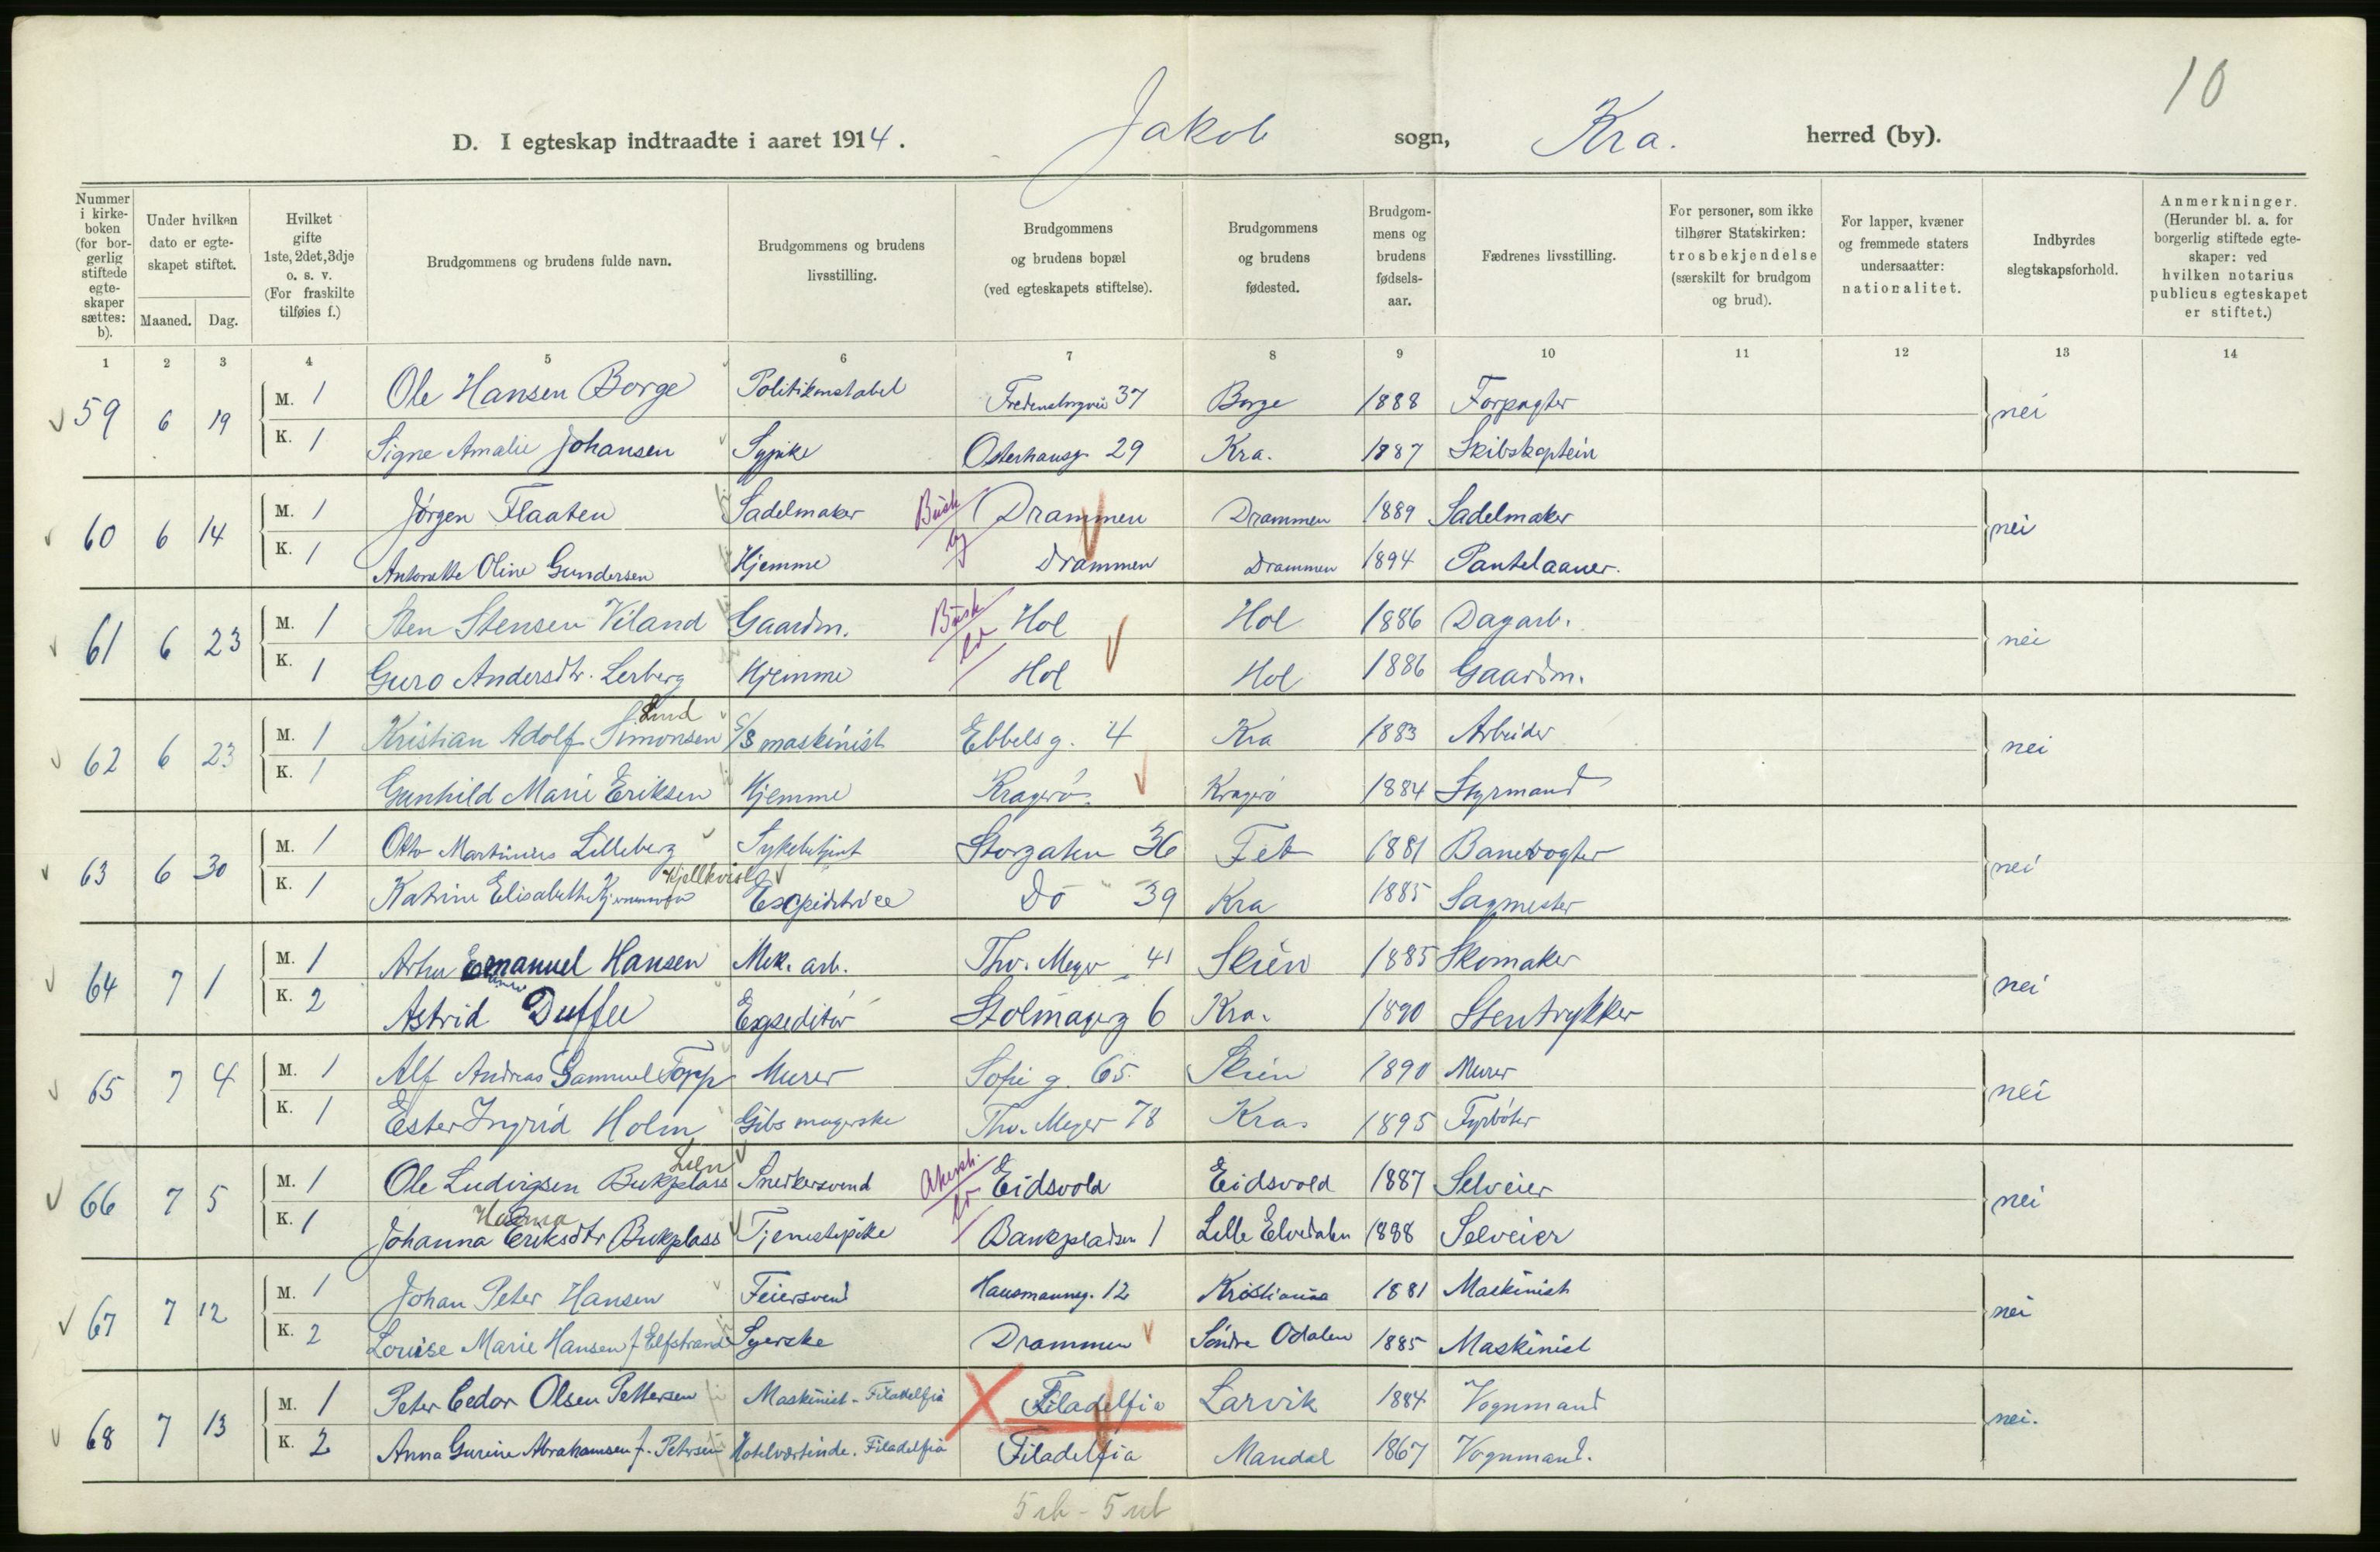 10
D. I egteskap indtraadte i aaret 1914. Jakob sogn, Kra. herred (by).
Nummer i kirkeboken (for borgerlig stiftede egteskaper sættes: b).
Under hvilken dato er egteskapet stiftet.
Maaned. Dag.
Hvilket gifte 1ste, 2det, 3dje o. s. v. (For fraskilte tilføies f.)
Brudgommens og brudens fulde navn.
Brudgommens og brudens livsstilling.
Brudgommens og brudens bopæl (ved egteskapets stiftelse).
Brudgommens og brudens fødested.
Brudgommens og brudens fødselsaar.
Fædrenes livsstilling.
For personer, som ikke tilhører Statskirken: trosbekjendelse (særskilt for brudgom og brud).
For lapper, kvæner og fremmede staters undersaatter: nationalitet.
Indbyrdes slegtskapsforhold.
Anmerkninger. (Herunder bl. a. for borgerlig stiftede egteskaper: ved hvilken notarius publicus egteskapet er stiftet.)
1 2 3 4 5 6 7 8 9 10 11 12 13 14
59 6 19 M. 1 Ole Hansen Borge Politikonstabel Fredensborgvei 37 Borge 1888 Forpagter nei
K. 1 Signe Amalie Johansen Sypike Osterhausg. 29 Kra. 1887 Skibskaptein
60 6 14 M. 1 Jörgen Flaaten Sadelmaker Busk by Drammen Drammen 1889 Sadelmaker nei
K. 1 Antonette Oline Gundersen Hjemme Drammen Drammen 1894 Pantelaaner.
61 6 23 M. 1 Sten Stensen Viland Gaardm. Busk ld Hol Hol 1886 Dagarb. nei
K. 1 Guro Andersdtr. Lerberg Hjemme Hol Hol 1886 Gaardm.
62 6 23 M. 1 Kristian Adolf Simonsen Lund S/S maskinist Ebbelsg. 4 Kra 1883 Arbeider nei
K. 1 Gunhild Marie Eriksen Hjemme Kragerö Kragerö 1884 Styrmand
63 6 30 M. 1 Otto Martinius Lilleberg Sykebetjent Storgaten 36 Fet 1881 Banevogter nei
K. 1 Katrine Elisabeth Kjellkvist Expiditrice Do " 39 Kra 1885 Sagmester
64 7 1 M. 1 Arthur Emanuel Hansen Mek. arb. Thv. Meyer 41 Skien 1885 Skomaker nei
K. 2 Astrid Duffee Expeditör Stolmagerg 6 Kra. 1890 Stentrykker
65 7 4 M. 1 Alf Andreas Sammuel Topp Murer Sofie g. 65. Skien 1890 Murer nei
K. 1 Ester Ingrid Holm Gibsmagerske Thv. Meyer 78 Kra. 1895 Fyrböter
66 7 5 M. 1 Ole Ludvigsen Bukplass Lien Snekersvend Akersh. ld Eidsvold Eidsvold 1887 Selveier nei
K. 1 Johanna Eriksdtr Bukplass Tjenestepike Bankpladsen 1 Lille Elvedalen 1888 Selveier
67 7 12 M. 1 Johan Peter Hansen Feiersvend Hausmannsg. 12 Kristiania 1881 Maskinist nei
K. 2 Louise Marie Hansen f. Elfstrand Syerske Drammen Söndre Odalen 1885 Maskinist
68 7 13 M. 1 Peter Cedor Olsen Pettersen Maskinist - Filadelfia Filadelfia Larvik 1884 Vognmand nei.
K. 2 Anna Gurine Abrahamsen f. Petersen Hotelværtinde. Filadelfia Filadelfia Mandal 1867 Vognmand.